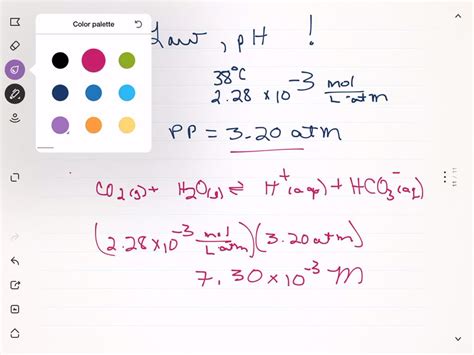 Color palette
Law, pH !
38°C
2.28 × 10⁻³ mol/L·atm
PP = 3.20 atm
CO₂(g) + H₂O(l) ⇌ H⁺(aq) + HCO₃⁻(aq)
(2.28×10⁻³ mol/L·atm)(3.20 atm)
7.30×10⁻³ M